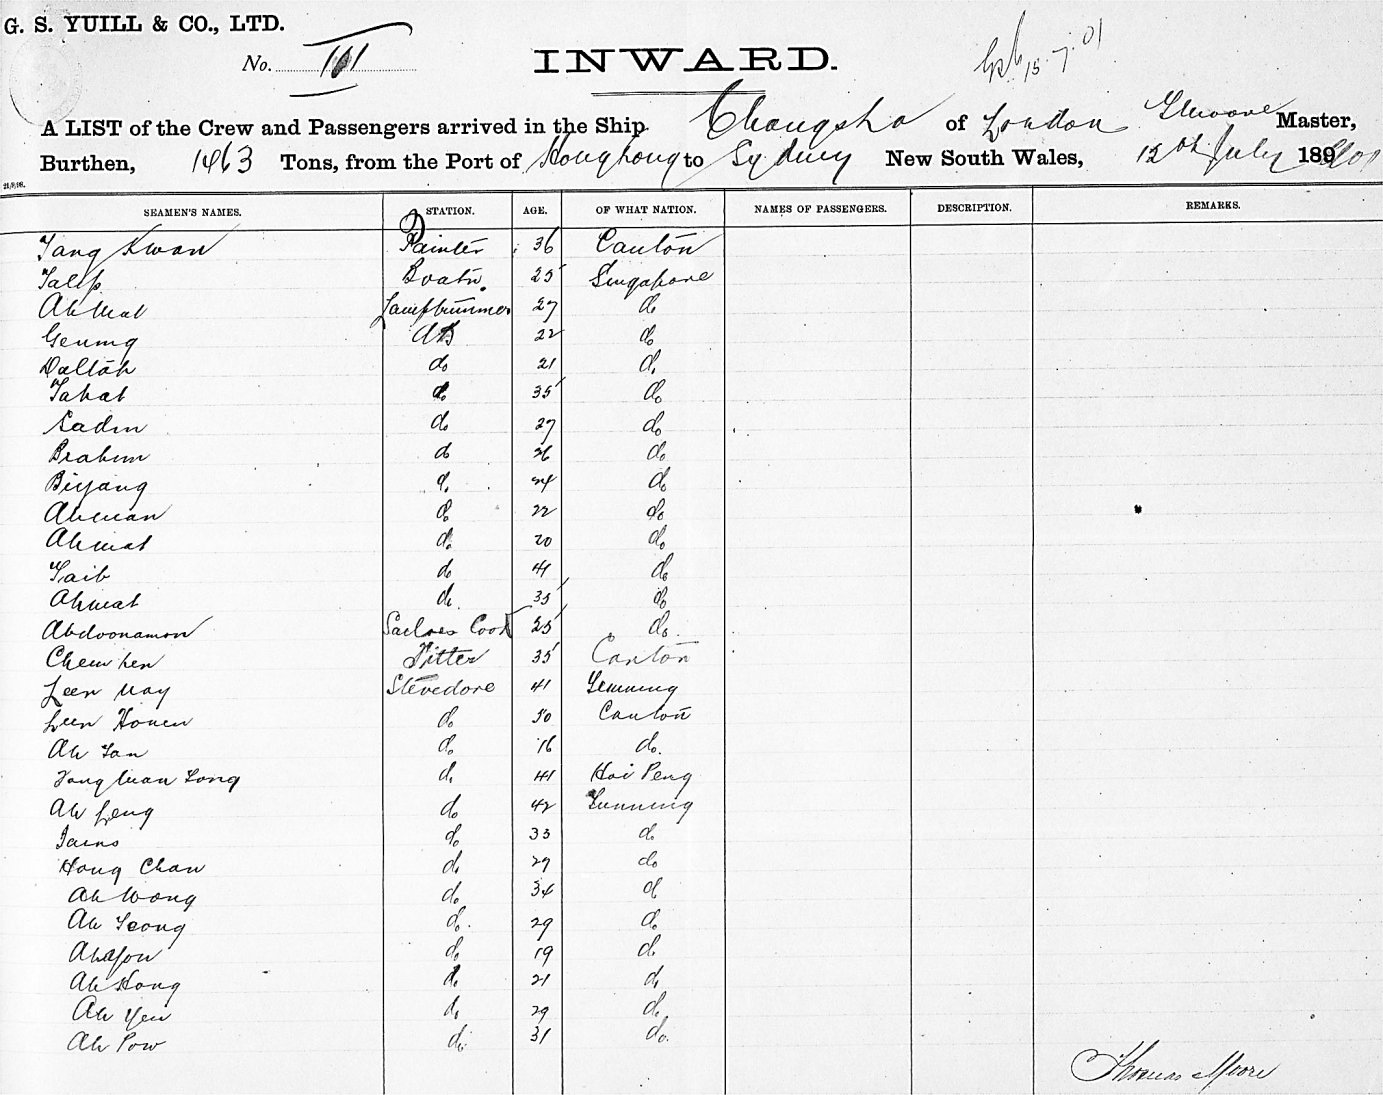 G. S. YUILL & CO., LTD.
No. 101
INWARD.
15.7.01
A LIST of the Crew and Passengers arrived in the Ship Changsha of London T Moore Master,
Burthen, 1463 Tons, from the Port of Hongkong to Sydney New South Wales, 12th July 1901
21/9/98.
SEAMEN'S NAMES. STATION. AGE. OF WHAT NATION. NAMES OF PASSENGERS. DESCRIPTION. REMARKS.
Tang Kwan Painter 36 Canton
Talip Boatn. 25 Singapore
Ahmat Lamptrimmer 27 do
Geumg AB 22 do
Dallah do 21 do
Tahat do 35 do
Sadin do 27 do
Brahim do 26 do
Biyang do 24 do
Ahman do 22 do
Ahmat do 20 do
Taib do 41 do
Ahmat do 35 do
Abdoonamon Sailors Cook 25 do
Chew hen Fitter 35 Canton
Leen May Stevedore 41 Sunning
Leen Howen do 50 Canton
Ah Tan do 16 do
Tong Wan Tong do 41 Hoi Peng
Ah Leng do 42 Sunning
do 33 do
Hong Chan do 29 do
Ah Wong do 34 do
Ah Seong do 29 do
Ah You do 19 do
Ah Hong do 21 do
Ah Yew do 29 do
Ah Pow do 31 do
Thomas Moore